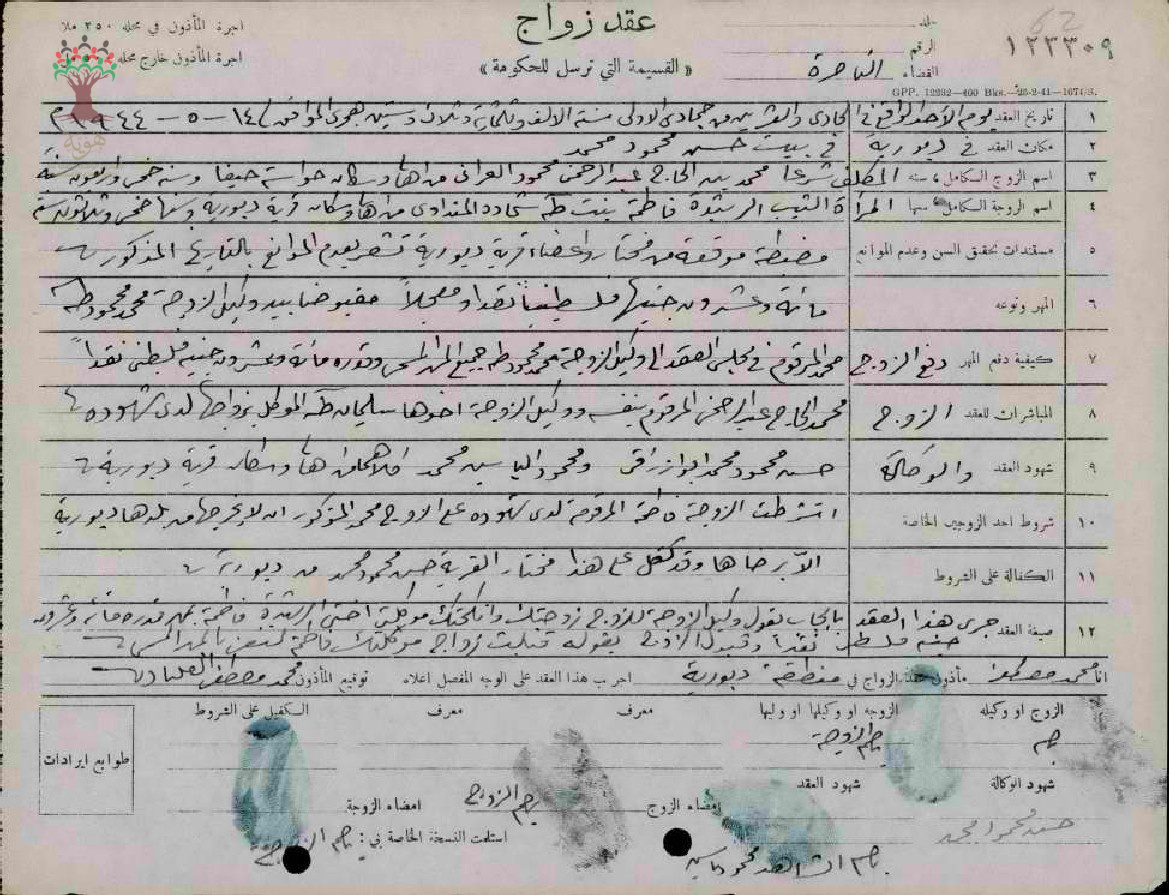 عقد زواج
اجرة المأذون في محله ٢٥٠ ملا
اجرة المأذون خارج محله
« القسيمة التي ترسل للحكومة »
62
١٣٣٣٠٩
مجلد
الرقم
القضاء الناصرة
GPP. 12982—400 Bks.—25-2-41—1674/S.
١ تاريخ العقد يوم الأحد الواقع في الحادي والعشرين من جمادى الاولى سنة الالف وثلثماية وثلاث وستين هجري الموافق ١٤ - ٥ - ١٩٤٤ م
٢ مكان العقد في دبورية في بيت حسن محمود محمد
٣ اسم الزوج الكامل ، سنه المكلف شرعا محمد بن الحاج عبد الرحمن محمود من اهالي وسكان حواسة حيفا وسنه خمس واربعون سنة
٤ اسم الزوجة الكامل سنها المرأة الثيب الرشيدة فاطمة بنت طه شحاده من اهالي وسكان قرية دبورية وسنها خمس وثلاثون سنة
٥ مستندات تحقق السن وعدم الموانع مضبطة موقعة من مختار واعضاء قرية دبورية تشعر بعدم الموانع بالتاريخ المذكور
٦ المهر ونوعه مائة وعشرون جنيها فلسطينياً نقدا ومعجلاً مقبوضا بيد وكيل الزوجة محمد محمود طه
٧ كيفية دفع المهر دفع الزوج محمد المرقوم في مجلس العقد الى وكيل الزوجة محمد محمود طه جميع المهر المسمى وقدره مائة وعشرون جنيه فلسطيني نقداً
٨ المباشران للعقد الزوج محمد الحاج عبد الرحمن المرقوم بنفسه ووكيل الزوجة اخوها سليمان طه الموكل بزواجها لدى شهوده
٩ شهود العقد والوكالة حسن محمود محمد ومحمود الياسين محمد كلاهما من اهالي وسكان قرية دبورية
١٠ شروط احد الزوجين الخاصة اشترطت الزوجة فاطمة المرقومة لدى شهوده على الزوج محمد المذكور ان لا يخرجها من بلدها دبورية
١١ الكفالة على الشروط الاّ برضاها وقد كفل على هذا مختار القرية حسن محمود محمد من دبورية
١٢ صيغة العقد جرى هذا العقد بايجاب بقول وكيل الزوجة للزوج زوجتك وانكحتك موكلتي اختي الرشيدة فاطمة بمهر قدره مائة وعشرون
جنيه فلسطيني نقداً وقبول الزوج بقوله قبلت زواج موكلتك فاطمة لنفسي بالمهر المسمى
انا محمد مصطفى مأذون عقد الزواج في منطقة دبورية اجريت هذا العقد على الوجه المفصل اعلاه توقيع المأذون محمد مصطفى
الزوج او وكيله الزوجه او وكيلها او وليها معرف معرف الكفيل على الشروط
طوابع ايرادات
شهود الوكالة شهود العقد
امضاء الزوج امضاء الزوجة
حسن محمود محمد
استلمت النسخة الخاصة بي :